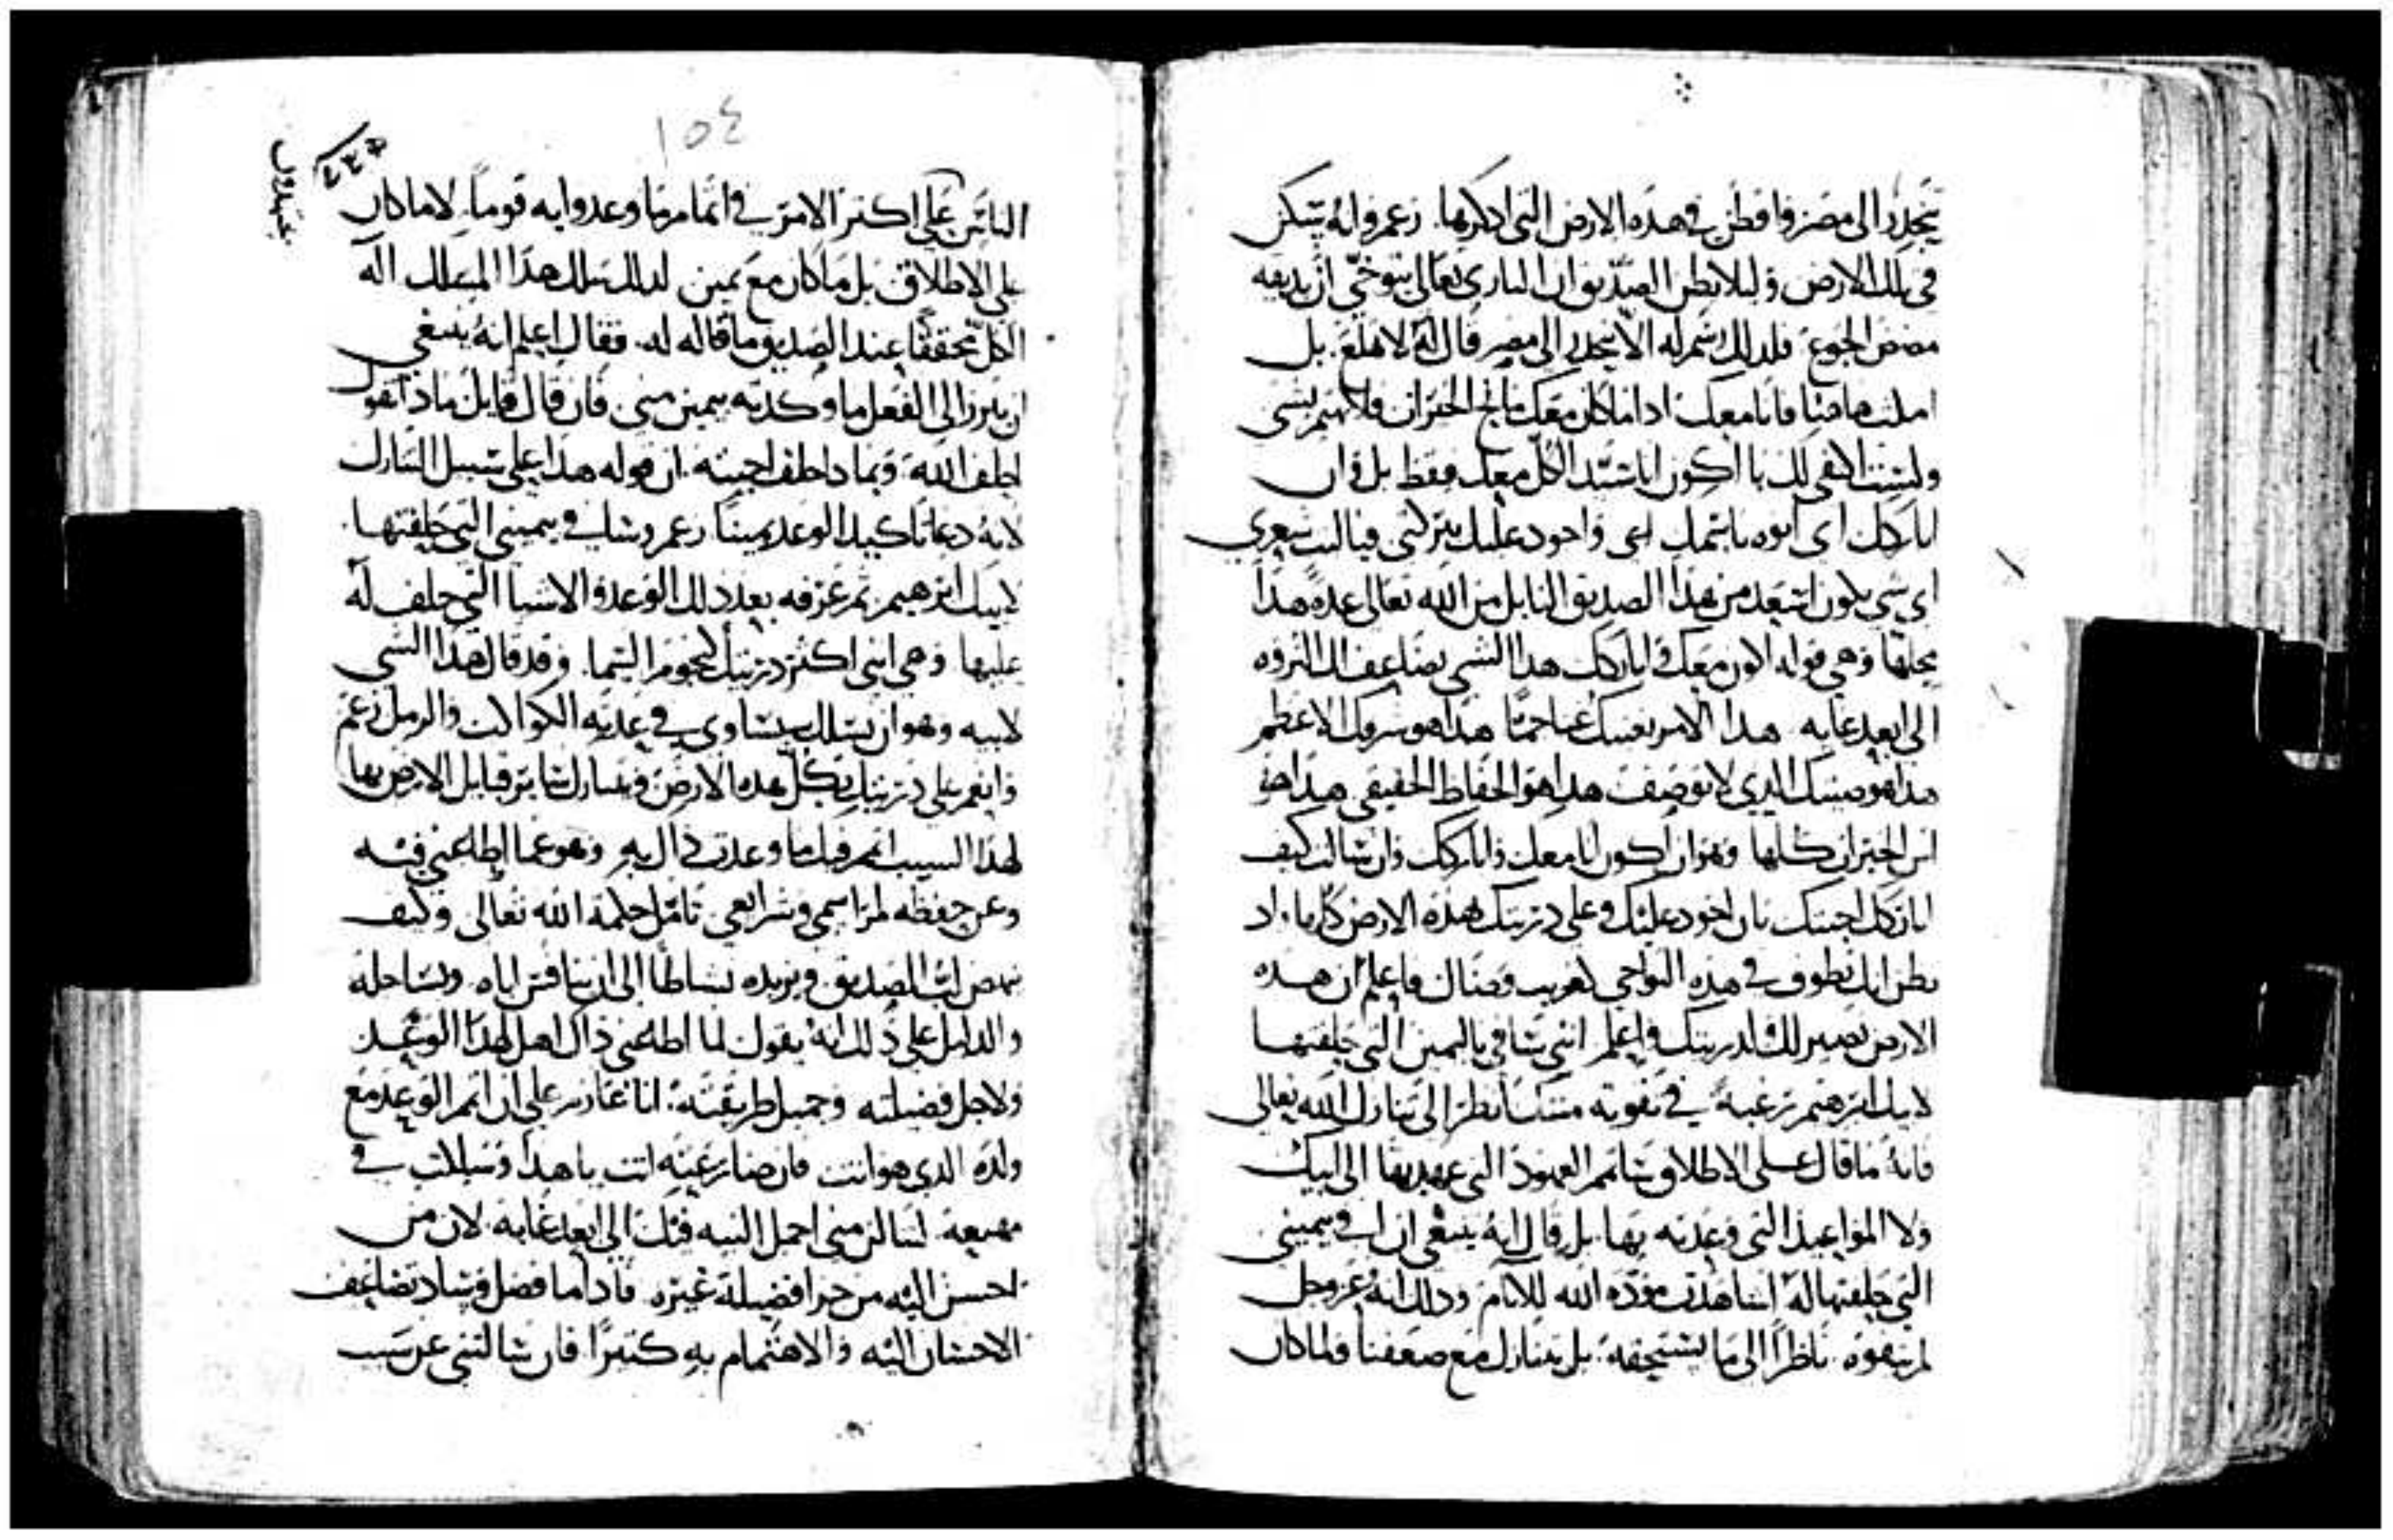 ينحدر الى مصر واقطن في هذه الارض التي اذكرها. زعم وانه يسكن
في تلك الارض وليلا يظن الصديق ان الباري تعالى يتوخى ان يذيقه
مضض الجوع فلذلك رسم له الا ينحدر الى مصر قال له لا تهلع. بل
امكث هاهنا فانا معك اذا ما كان معك مانح الخيرات فلا تهتم بشي
ولست اكتفي لك بان اكون انا سيد الكل معك فقط بل وان
اباركك اي انوه باسمك اي واجود عليك ببركتي فياليت شعري
اي شي يكون اسعد من هذا الصديق النايل من الله تعالى عدة هذا
محلها وهي قوله اكون معك واباركك هذا الشي يضاعف لك الثروه
الى ابعد غايه هذا الامر يفيدك غنا جما هذا هو شرفك الاعظم
هذا هو مجدك الذي لا يوصف هذا هو الحفاظ الحقيقي هذا هو
اس الخيرات كلها وهو ان اكون انا معك واباركك وان سالت كيف
اباركك اجبتك بان اجود عليك وعلى ذريتك بهذه الارض كلها. اذ
تظن انك تطوف في هذه النواحي كغريب وضال فاعلم ان هذه
الارض تصير لك ولذريتك واعلم انني سافي باليمين التي حلفتها
لابيك ابرهيم رغبة في تقوية نفسك انظر الى تنازل الله تعالى
فانه ما قال على الاطلاق ساتمم العهود التي عهدتها الى ابيك
ولا المواعيد التي وعدته بها بل قال انه ينبغي ان افي بيميني
التي حلفتها له اشاهدت مودة الله للانام وذلك انه عز وجل
لم يتفوه ناظرا الى ما يستحقه. بل يتنازل مع ضعفنا ولما كان
١٥٤
الناس على اكثر الامر في اتمام ما وعدوا به قوما. لا ما كان
على الاطلاق بل ما كان مع يمين لذلك سلك هذا المسلك اله
الكل محققا عند الصديق ما قاله له. فقال اعلم انه ينبغي
ان يبرز الى الفعل ما وكدته بيمين مني فان قال قايل ماذا تقول
احلف الله وبماذا حلف اجبته ان قوله هذا على سبيل التنازل
لانه دعا تاكيد الوعد يمينا زعم وسافي بيميني التي حلفتها.
لابيك ابرهيم ثم عرفه بعد ذلك الوعد والاشيا التي حلف له
عليها وهي انني اكثر ذريتك كنجوم السما. وقد قال هذا الشي
لابيه وهو ان نسلك سيتساوى في عدته الكواكب والرمل زعم
وانعم على ذريتك بكل هذه الارض ويتبارك ساير قبايل الارض بها
لهذا السبب اتمم فيك ما وعدت ذاك به وهو عما اطاعني فيه
وعن حفظه لمراسمي وشرايعي تامل حكمة الله تعالى وكيف
ينهض لب الصديق ويزيده نشاطا الى ان ينافس اباه ويساجله
والدليل على ذلك انه يقول لما اطاعني ذاك اهل لهذا الوعد
ولاجل فضيلته وجميل طريقته. انا عازم على ان اتمم الوعد مع
ولده الذي هو انت فان صارعته انت يا هذا وسلكت في
مهيعه لتنالن مني اجمل النيه فيك الى ابعد غايه. لان من
احسن اليه من جرا فضيلة غيره فاذا ما فضل وساد تضاعف
الاحسان اليه والاهتمام به كثيرا فان سالتني عن سبب